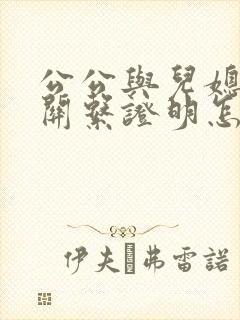 公公與兒媳
關繫證明怎
伊夫 弗雷諾